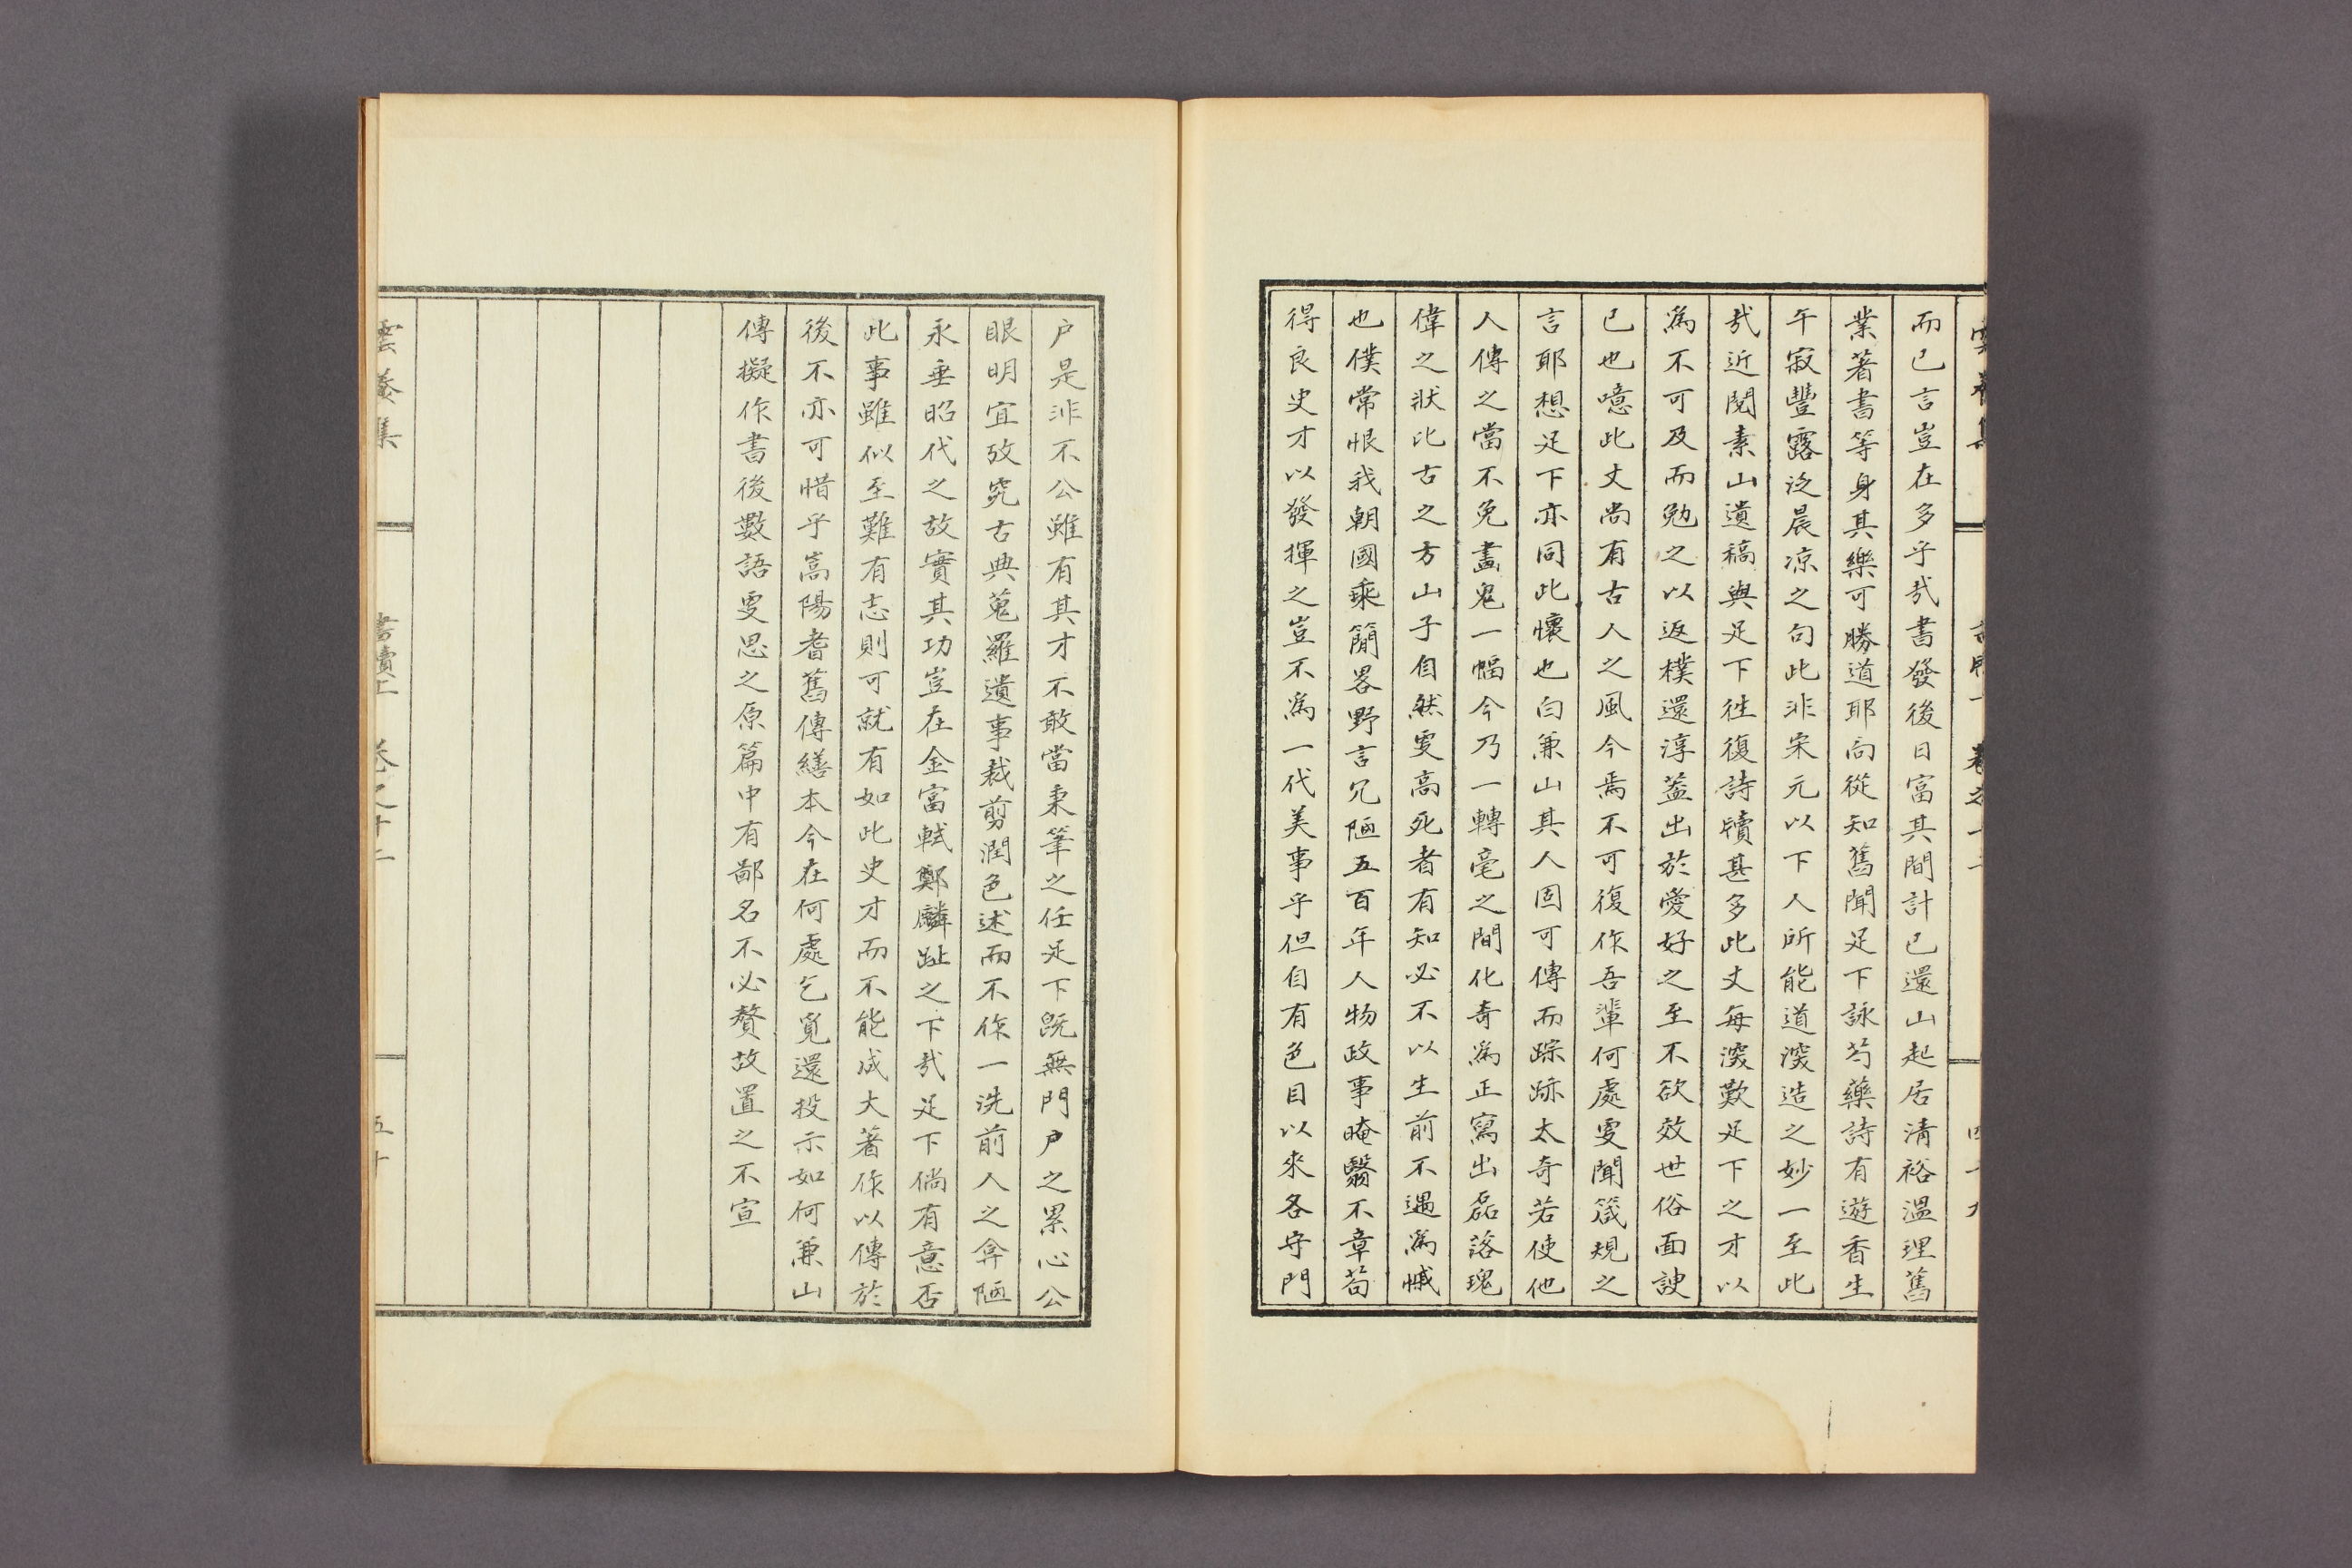 而已言豈在多乎㢤書發後日富其間計已還山起居淸裕溫理舊
業著書等身其樂可勝道耶向從知舊聞足下詠芍藥詩有遊香生
午寂豐露泛晨凉之句此非宋元以下人所能道湥造之妙一至此
㢤近閱素山遺稿與足下徃復詩牘甚多此丈每湥歎足下之才以
爲不可及而勉之以返樸還淳蓋出於愛好之至不欲效世俗面諛
已也噫此丈尚有古人之風今焉不可復作吾輩何處更聞箴規之
言耶想足下亦同此懷也白兼山其人固可傳而踪跡太奇若使他
人傳之當不免畵鬼一幅今乃一轉毫之間化奇爲正寫出磊落瑰
偉之狀比古之方山子自然更高死者有知必不以生前不遇爲慽
也僕常恨我朝國乘簡畧野言冗陋五百年人物政事晻翳不章苟
得良史才以發揮之豈不爲一代美事乎但自有色目以來各守門
户是非不公雖有其才不敢當秉筆之任足下旣無門户之累心公
眼明宜攷究古典蒐羅遺事裁剪潤色述而不作一洗前人之弇陋
永垂昭代之故實其功豈在金富軾鄭麟趾之下㢤足下倘有意否
此事雖似至難有志則可就有如此史才而不能成大著作以傳於
後不亦可惜乎嵩陽耆舊傳繕本今在何處乞覓還投示如何兼山
傳擬作書後數語更思之原篇中有鄙名不必贅故置之不宣
雲養集
書牘上
卷之十二
五十